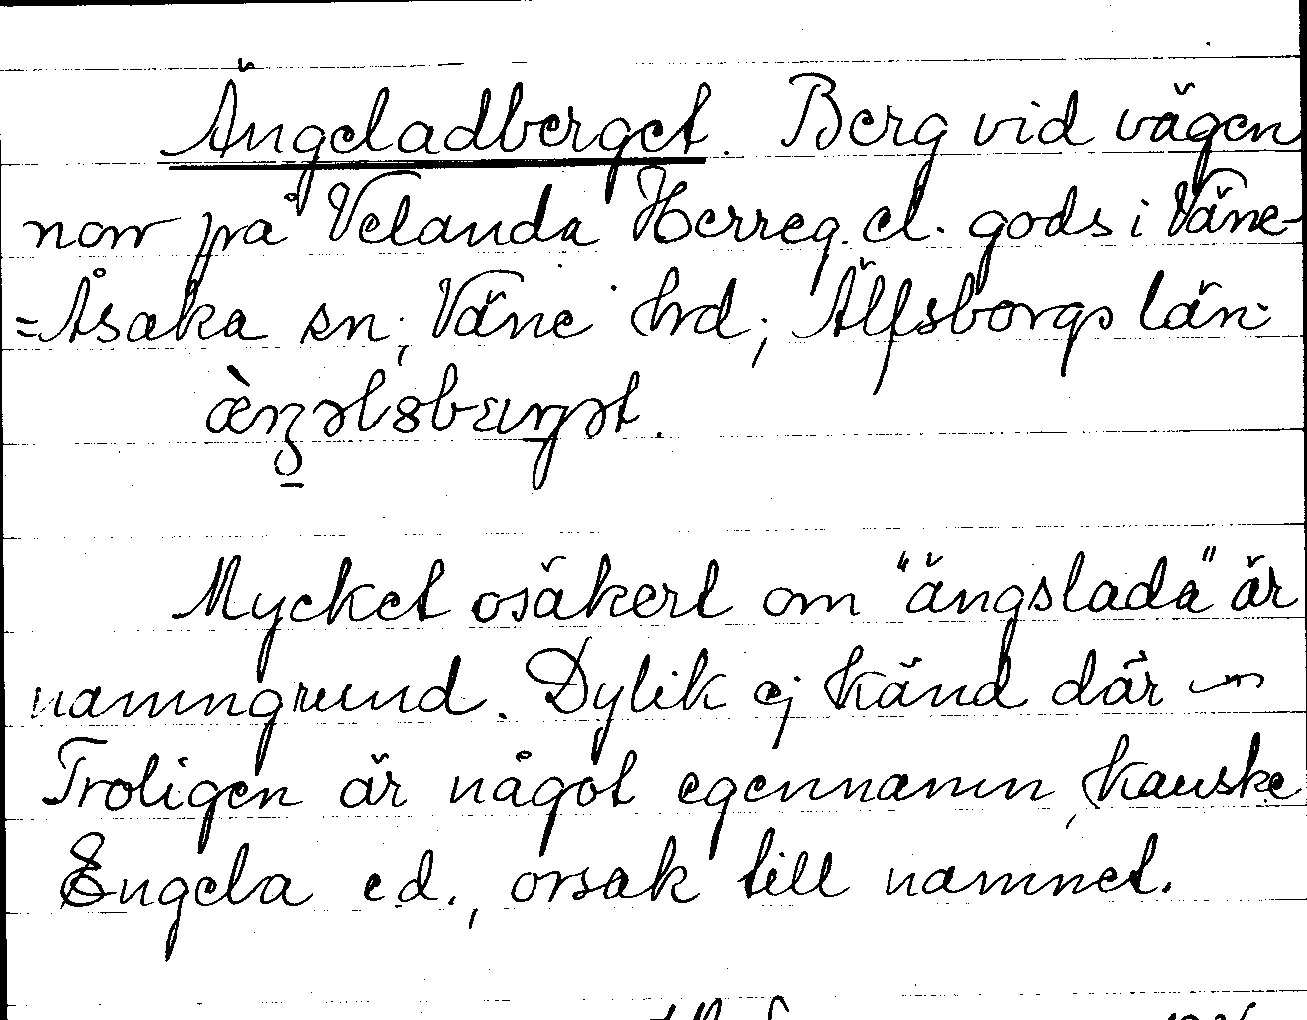 Ängeladberget. Berg vid vägen
norr på Velanda Herreg. el. gods i Väne-
=Åsaka sn; Väne hrd; Älfsborgs län
Mycket osäkert om "ängslada" är
namngrund. Dylik ej känd där
Troligen är något egennamn, kanske
Engela e d., orsak till namnet.